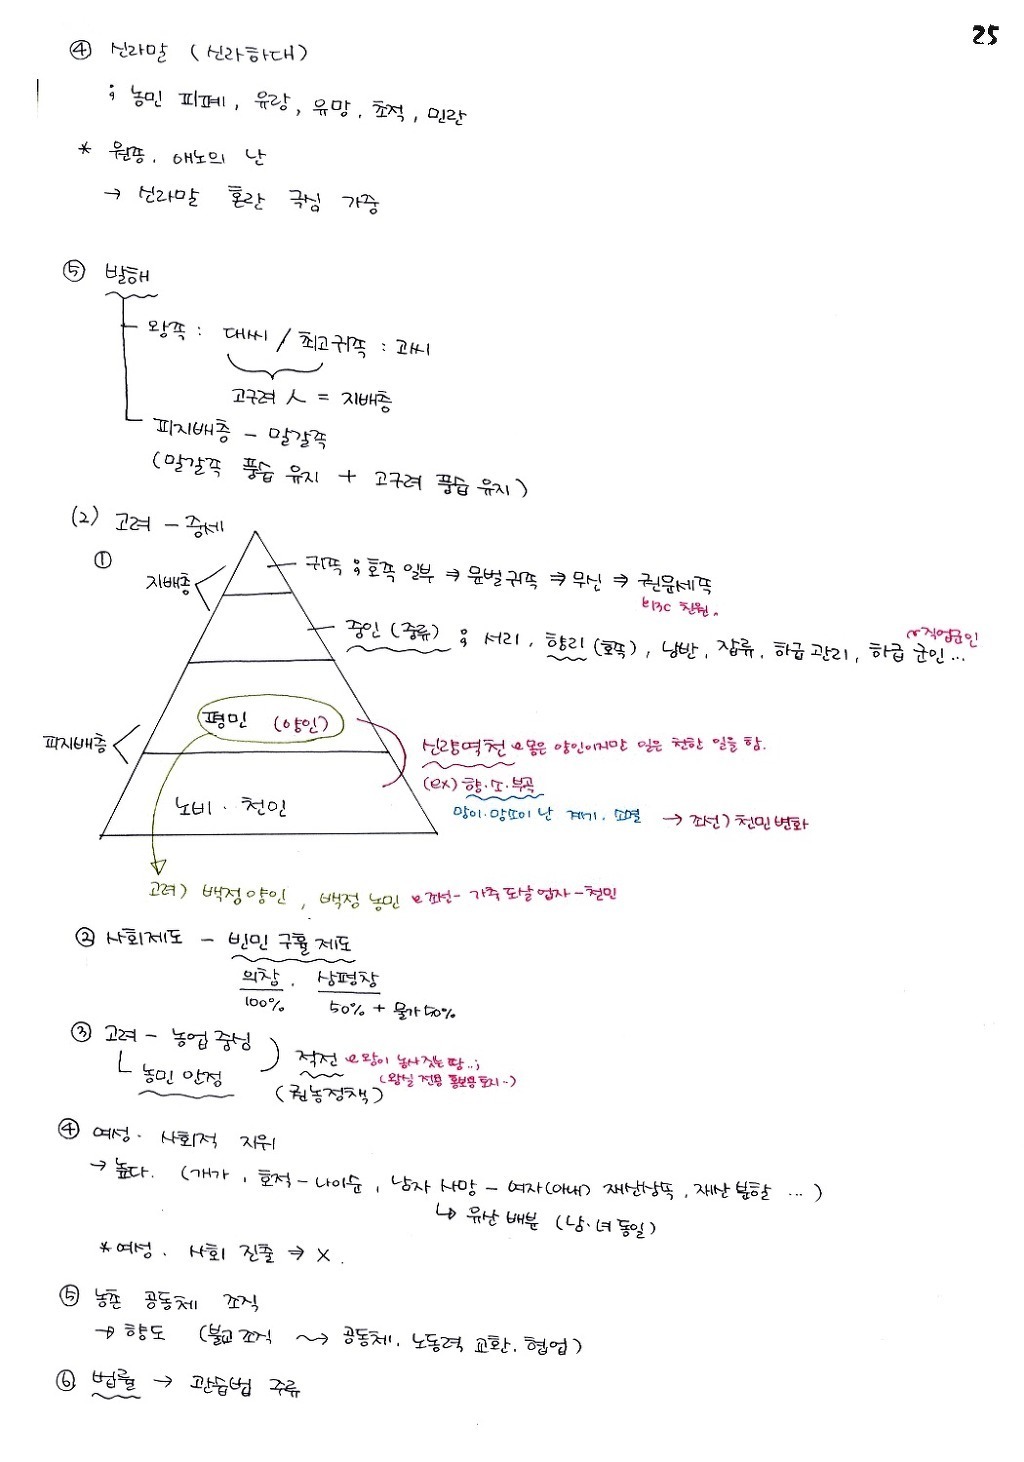 25
④ 신라말 (신라하대)
; 농민 피폐, 유랑, 유망, 초적, 민란
* 원쫑. 애노의 난
→ 신라말 혼란 극심 가중
⑤ 발해
왕족 : 대씨 / 최고귀족 : 고씨
고구려 人 = 지배층
피지배층 - 말갈족
(말갈족 풍습 유지 + 고구려 풍습 유지)
(2) 고려 - 중세
①
지배층
귀족 ; 호족 일부 → 문벌귀족 → 무신 → 권문세족
중인 (중류) ; 서리, 향리 (호족), 남반, 잡류, 하급 관리, 하급 군인...
직업군인
피지배층
평민 (양인)
신량역천 몸은 양인이지만 일은 천한 일을 함.
(ex) 향·소·부곡
노비· 천인
망이·망소이 난 계기. 소멸 → 조선) 천민변화
고려) 백정양인, 백정 농민 조선- 가축 도살 업자 - 천민
② 사회제도 - 빈민 구휼 제도
의창 · 상평창
100% 50% + 물가 50%
③ 고려 - 농업 중심
농민 안정
적전 왕이 농사 짓는 땅..;
(왕실 전용 홍보용 토지..)
(권농정책)
④ 여성· 사회적 지위
→ 높다. (개가, 호적 - 나이순, 남자 사망 - 여자(아내) 재산상속, 재산 분할 ...)
↳ 유산 배분 (남·녀 동일)
* 여성· 사회 진출 → X.
⑤ 농촌 공동체 조직
→ 향도 (불교 조직 → 공동체. 노동력 교환. 협업)
⑥ 법률 → 관습법 주류